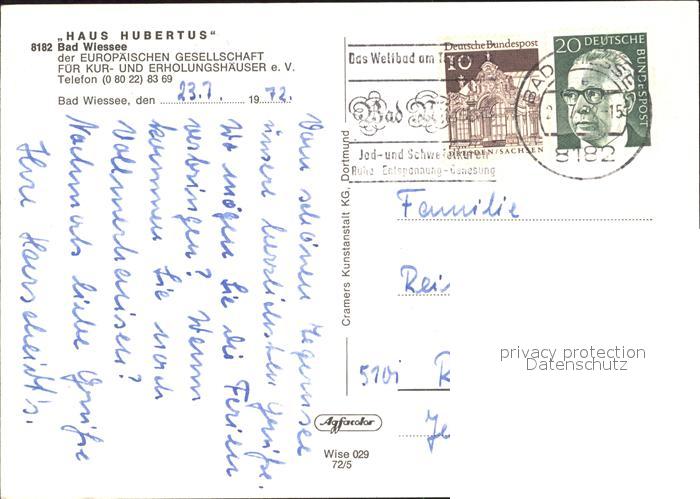 „HAUS HUBERTUS“
8182 Bad Wiessee
der EUROPÄISCHEN GESELLSCHAFT
FÜR KUR- UND ERHOLUNGSHÄUSER e. V.
Telefon (0 80 22) 83 69
Bad Wiessee, den 23.7. 1972.
Vom schönen Tegernsee
unsere herzlichsten Grüße.
Wo mögen Sie die Ferien
verbringen? Wann
kommen Sie nach
Vollmerhausen?
Nochmals liebe Grüße
Ihre
Cramers Kunstanstalt KG, Dortmund
Agfacolor
Wise 029
72/5
Das Weltbad am
Bad
Jod- und Schwefelkuren
Ruhe-Entspannung-Genesung
Deutsche Bundespost
10
DRESDEN/SACHSEN
20 DEUTSCHE BUNDESPOST
BAD
8182
Familie
Rei
privacy protection
Datenschutz